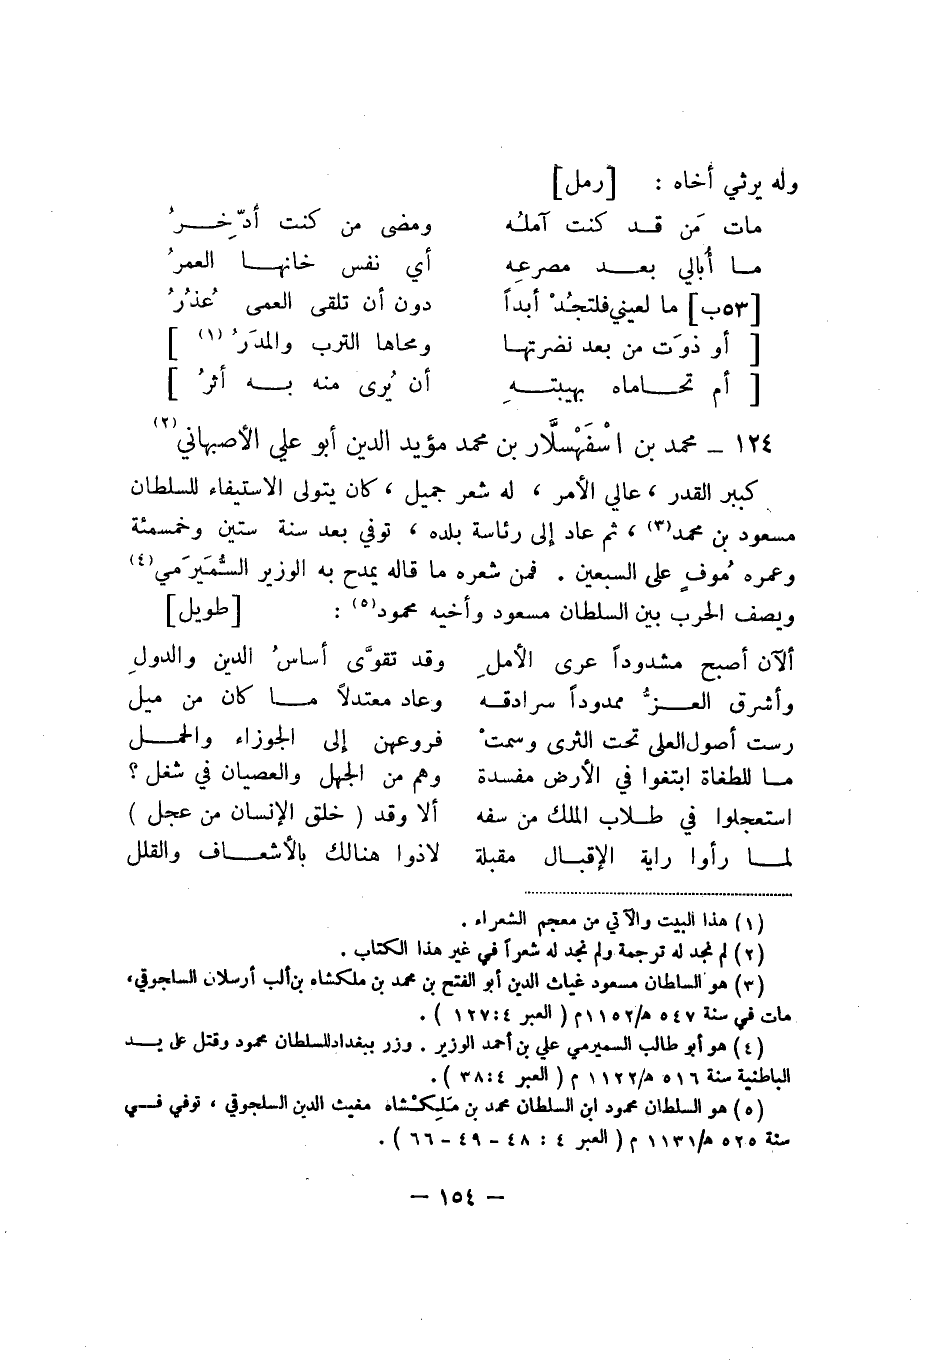 وله يرثي أخاه : [رمل]
مات مَن قد كنت آمله ومضى من كنت أدّخرُ
ما أُبالي بعد مصرعِه أي نفس خانها العمرُ
[٥٣ب] ما لعيني فلتجُدْ أبداً دون أن تلقى العمى عُذرُ
[ أو ذوَت من بعد نضرتها ومحاها الترب والمدَرُ (١) ]
[ أم تحاماه بهيبتهِ أن يُرى منه به أثرُ ]
١٢٤ – محمد بن اسْفَهْسلَّار بن محمد مؤيد الدين أبو علي الأصبهاني(٢)
كبير القدر ، عالي الأمر ، له شعر جميل ، كان يتولى الاستيفاء للسلطان
مسعود بن محمد(٣) ، ثم عاد إلى رئاسة بلده ، توفي بعد سنة ستين وخمسمئة
وعمره مُوفٍ على السبعين . فمن شعره ما قاله يمدح به الوزير السُّمَيرَمي(٤)
ويصف الحرب بين السلطان مسعود وأخيه محمود(٥) : [طويل]
ألآن أصبح مشدوداً عرى الأملِ وقد تقوَّى أساسُ الدين والدولِ
وأشرق العزُّ ممدوداً سرادقه وعاد معتدلاً ما كان من ميل
رست أصول العلى تحت الثرى وسمتْ فروعهن إلى الجوزاء والحمل
ما للطغاة ابتغوا في الأرض مفسدة وهم من الجهل والعصيان في شغل ؟
استعجلوا في طلاب الملك من سفه ألا وقد ( خلق الإنسان من عجل )
لما رأوا راية الإقبال مقبلة لاذوا هنالك بالأشعاف والقلل
(١) هذا البيت والآتي من معجم الشعراء .
(٢) لم نجد له ترجمة ولم نجد له شعراً في غير هذا الكتاب .
(٣) هو السلطان مسعود غياث الدين أبو الفتح بن محمد بن ملكشاه بن ألب أرسلان السلجوقي،
مات في سنة ٥٤٧ ه/١١٥٢م ( العبر ١٢٧:٤ ) .
(٤) هو أبو طالب السميرمي علي بن أحمد الوزير . وزر ببغداد للسلطان محمود وقتل على يد
الباطنية سنة ٥١٦ ه/١١٢٢ م ( العبر ٣٨:٤ ) .
(٥) هو السلطان محمود ابن السلطان محمد بن مَلِكْشاه مغيث الدين السلجوقي ، توفي في
سنة ٥٢٥ ه/١١٣١ م ( العبر ٤ : ٤٨ – ٤٩ – ٦٦ ) .
– ١٥٤ –